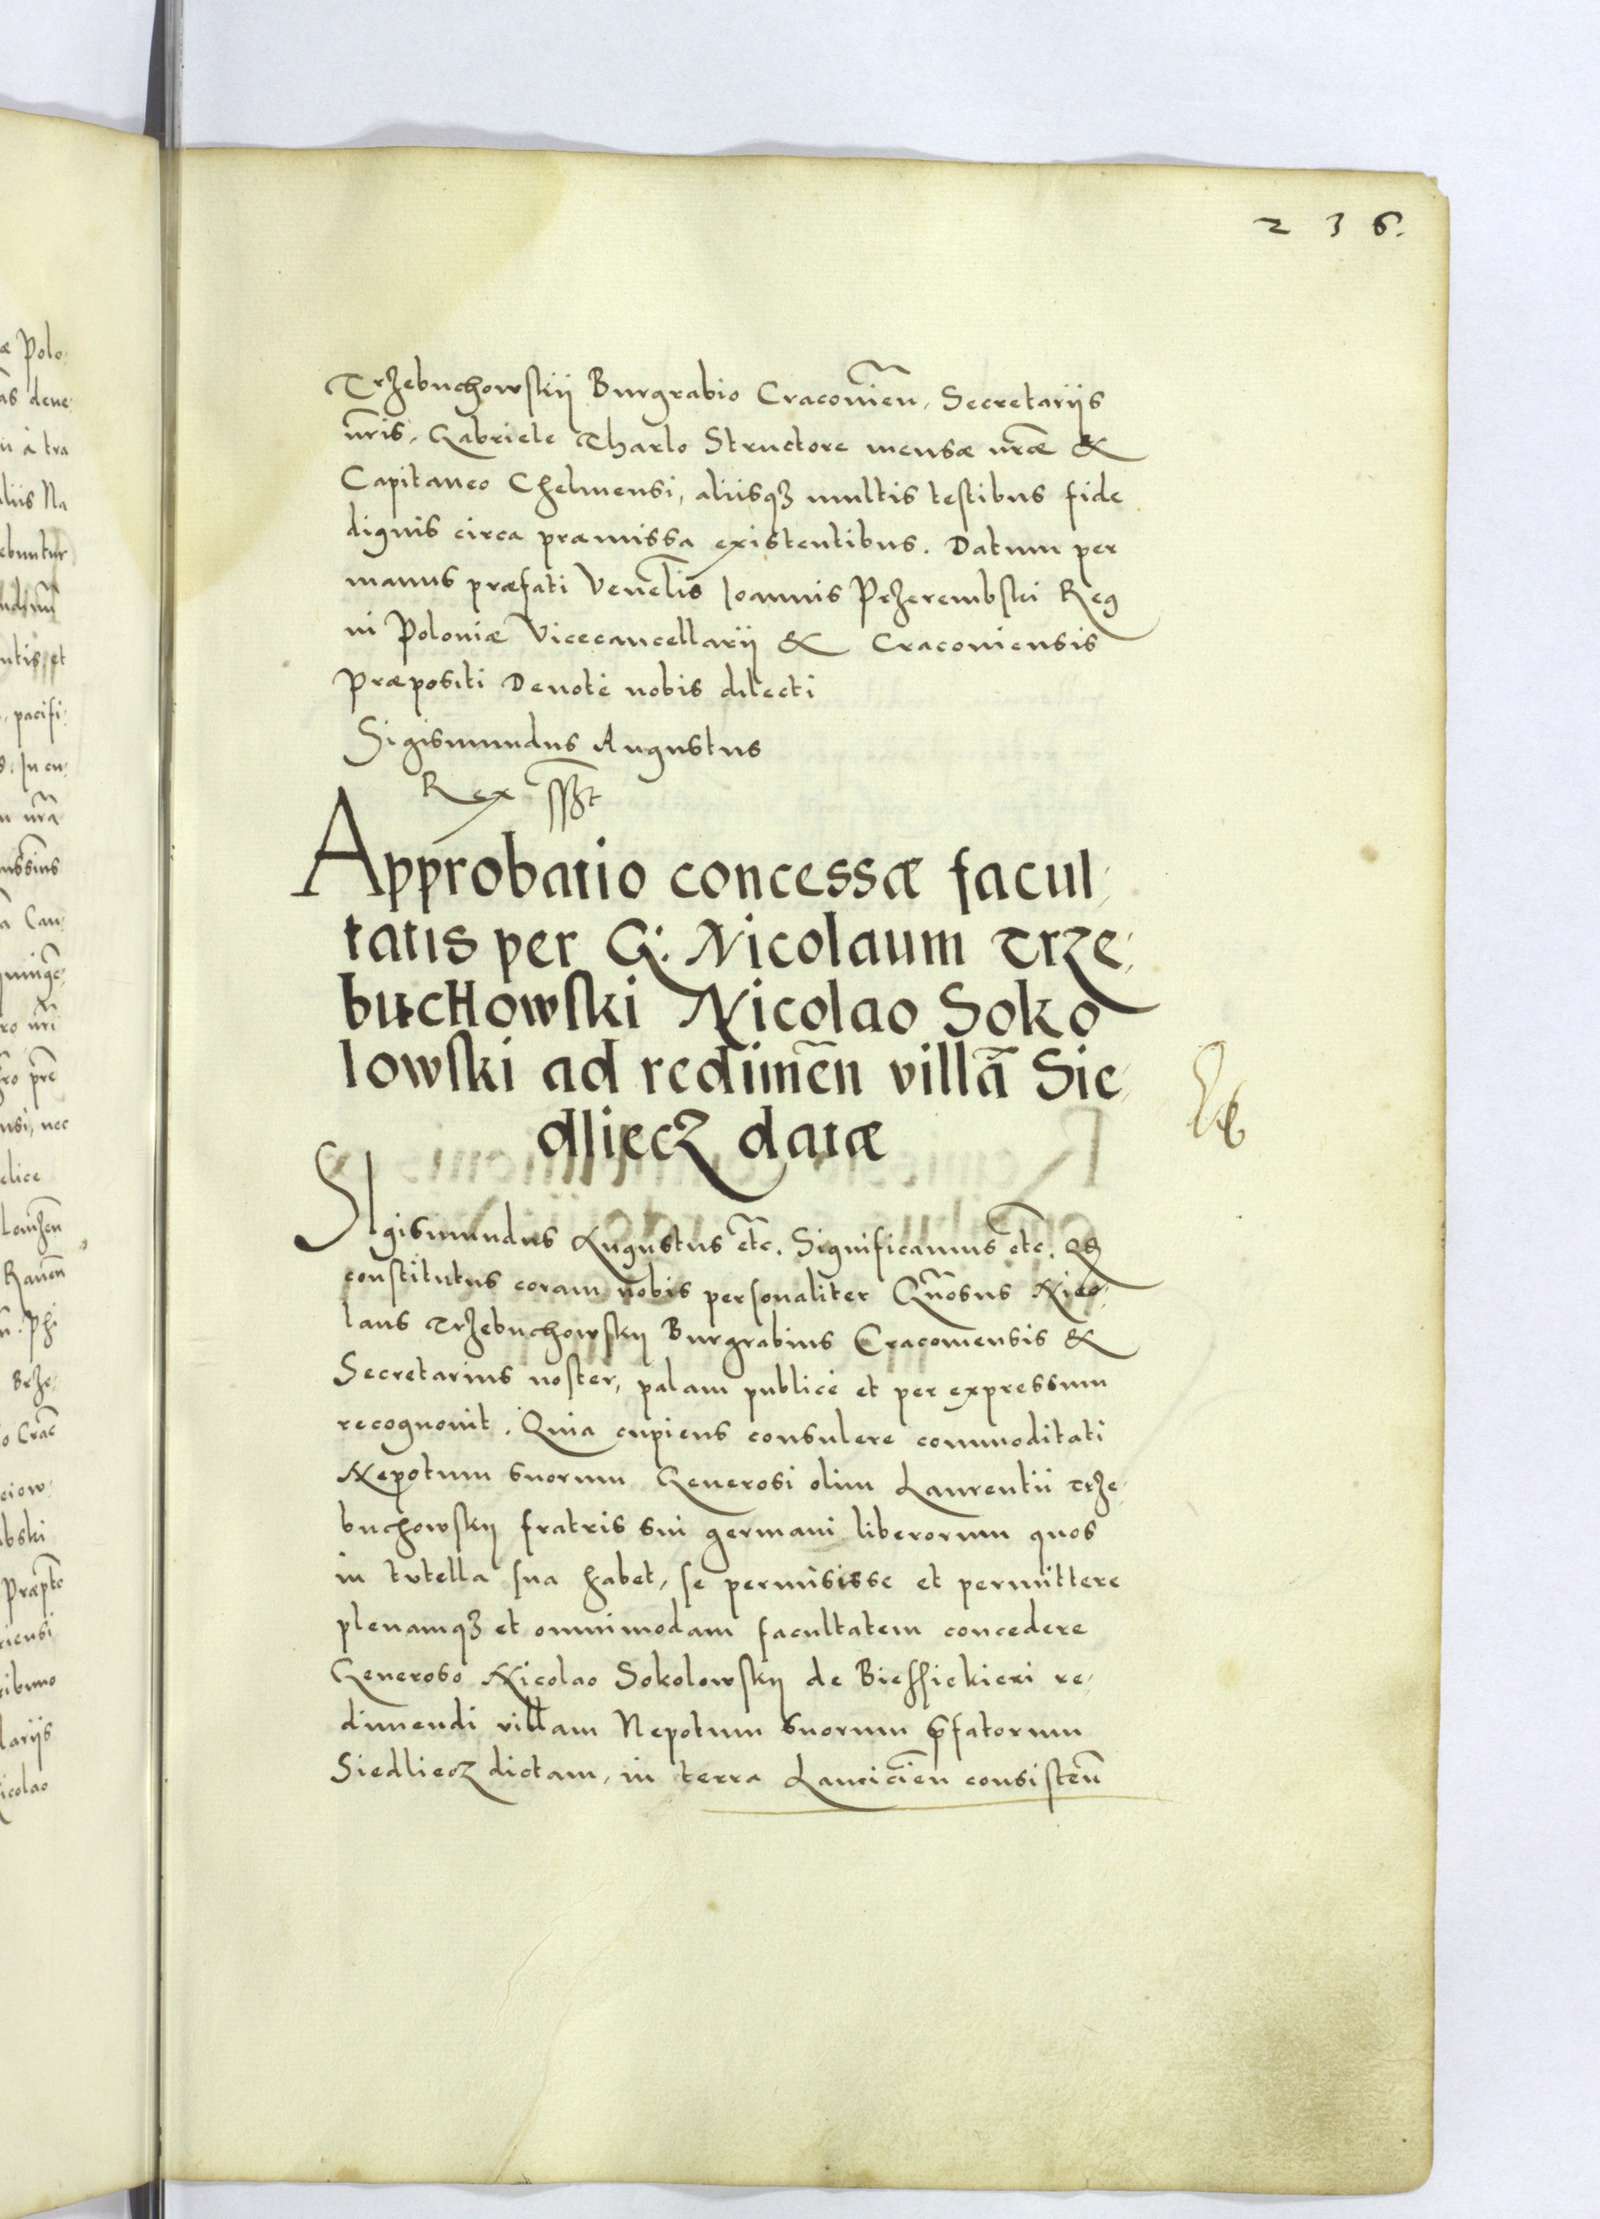 236.
Trzebuchowskij Burgrabio Cracovien̄, Secretariis
nr̄is, Gabriele Tharlo Structore mensæ nr̄æ &
Capitaneo Chelmensi, aliisqz multis testibus fide
dignis circa præmissa existentibus. Datum per
manus præfati Venēlis Joannis Przerembski Reg
ni Poloniæ Vicecancellarij & Cracoviensis
Præpositi Devotè nobis dilecti
Sigismundus Augustus
Rex sszt
Approbatio concessæ facul,
tatis per G: Nicolaum Trze,
buchowski Nicolao Soko
lowski ad redimen̄ villā Sie,
dliecz datæ
Sigismundus Augustus etc̄. Significamus etc̄. Qz
constitutus coram nobis personaliter Gn̄osus Nico,
laus Trzebuchowskij Burgrabius Cracoviensis &
Secretarius noster, palam publicè et per expressum
recognovit. Quia cupiens consulere commoditati
Nepotum suorum Generosi olim Laurentii Trze,
buchowskij fratris sui germani liberorum quos
in tutella sua habet, se permisisse et permittere
plenamqz et omnimodam facultatem concedere
Generoso Nicolao Sokolowskij de Biessiekieri re,
dimendi villam Nepotum suorum p̄fatorum
Siedliecz dictam, in terra Lancicien̄ consisten̄